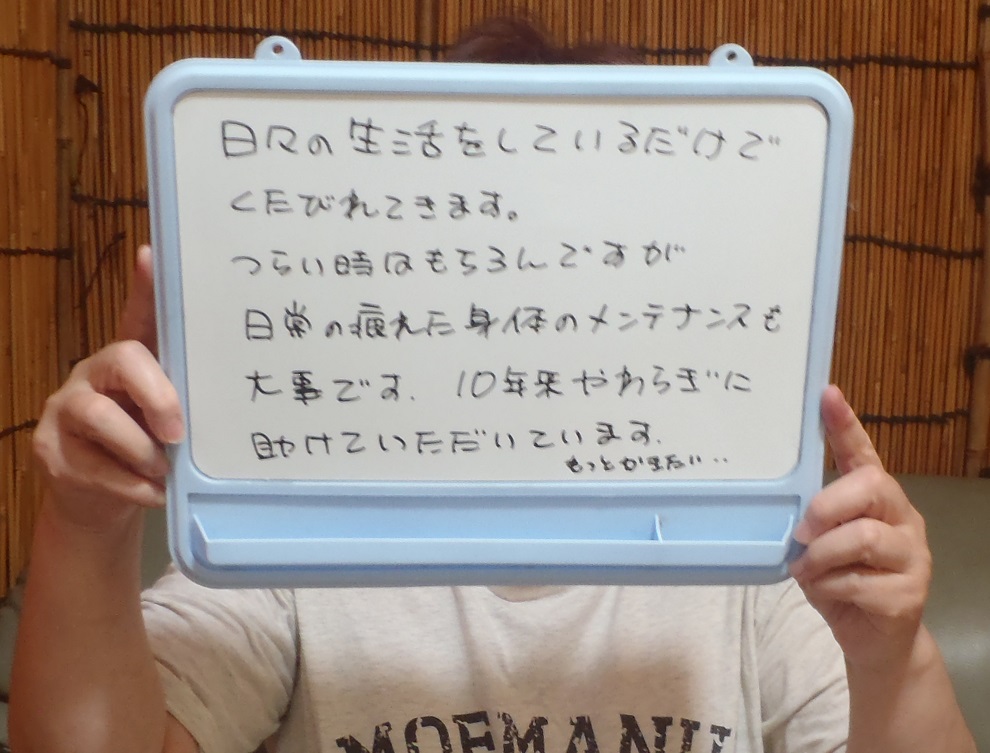 日々の生活をしているだけで
くたびれてきます。
つらい時はもちろんですが
日常の疲れた身体のメンテナンスも
大事です. 10年来やわらぎに
助けていただいています.